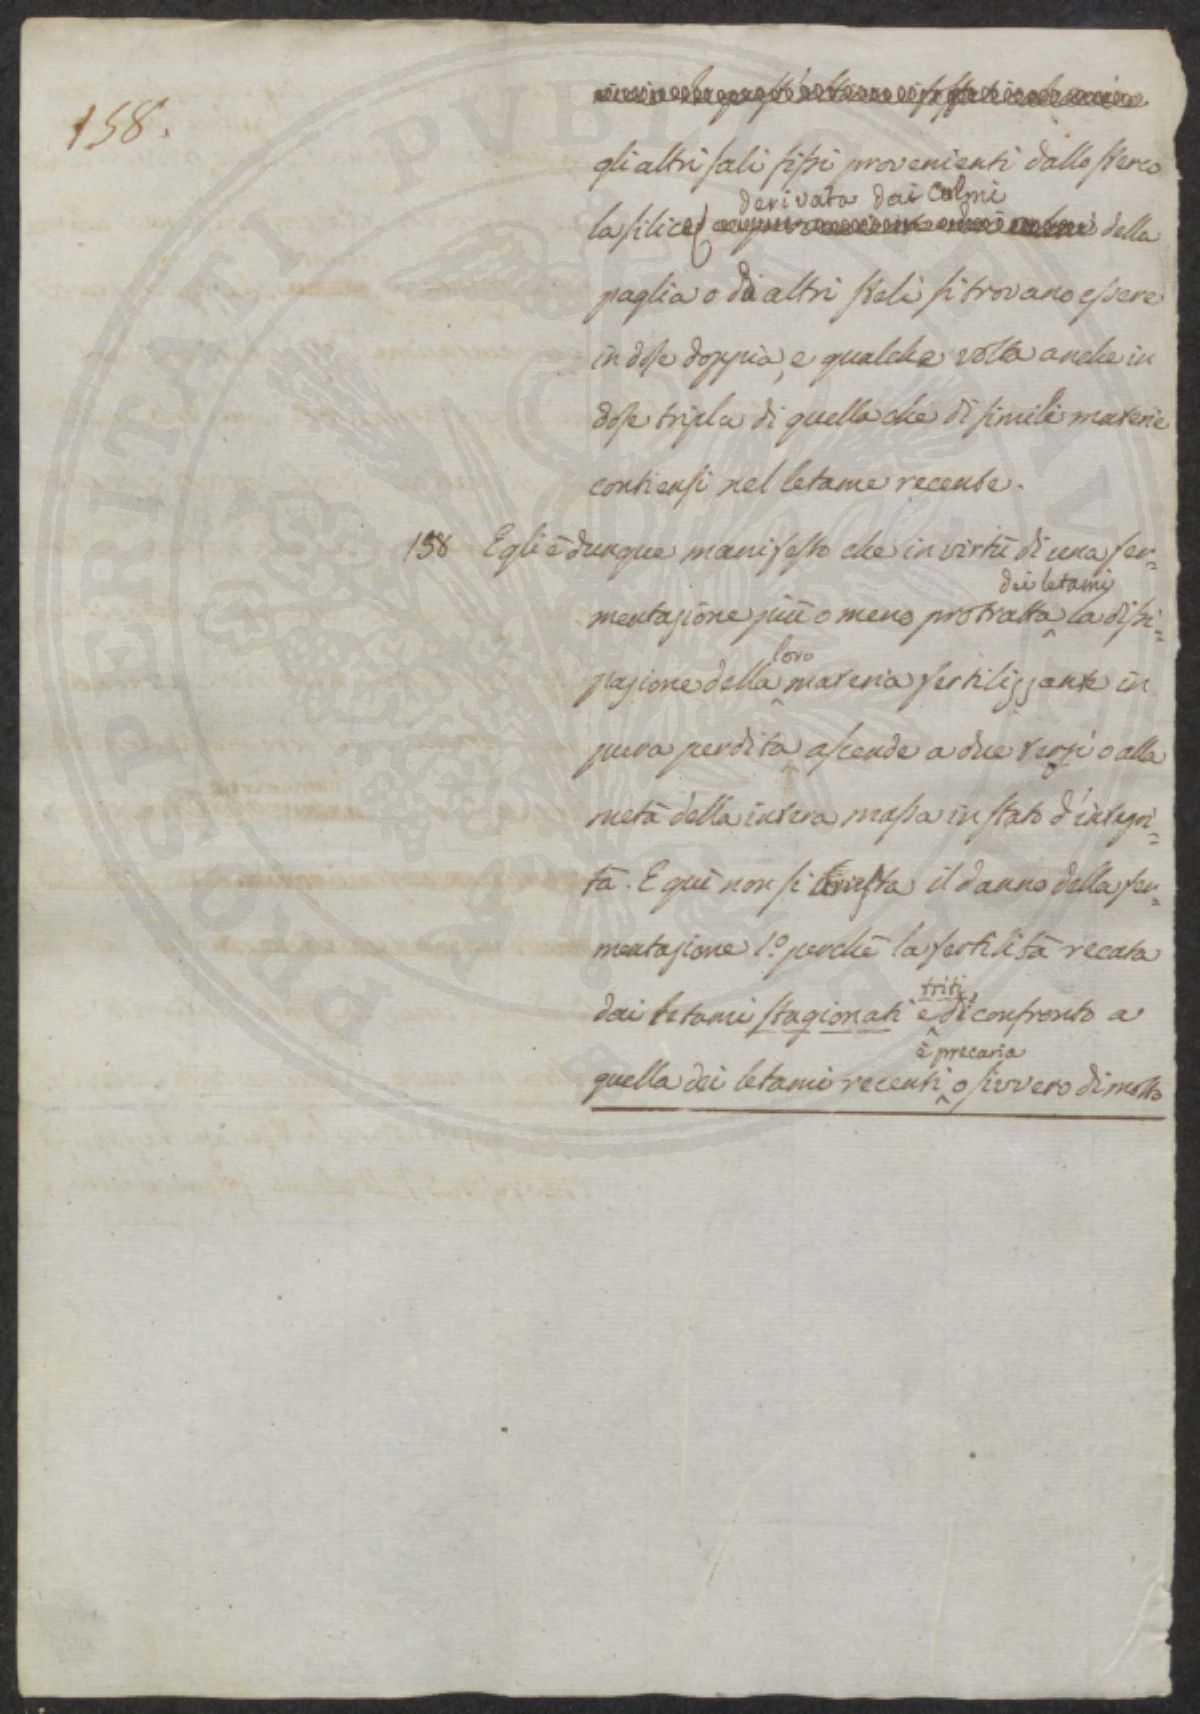 158.
gli altri sali fissi provenienti dallo sterco
derivata dai Colmi
la silice della
paglia o di altri steli si trovano essere
in dose doppia, e qualche volta anche in
dose tripla di quella che di simili materie
contiensi nel letame recente.
158 Egli è dunque manifesto che in virtù di una fer=
dei letami
mentazione più o meno protratta la dissi=
loro
pazione della materia fertilizzante in
pura perdita ascende a due terzi o alla
metà della intera massa in stato d'integri=
tà. E quì non si arresta il danno della fer=
mentazione 1.o perchè la fertilità recata
triti,
dai letami stagionati è di confronto a
è precaria
quella dei letami recenti o sivvero di molto
PROSPERITATI PVBLICAE